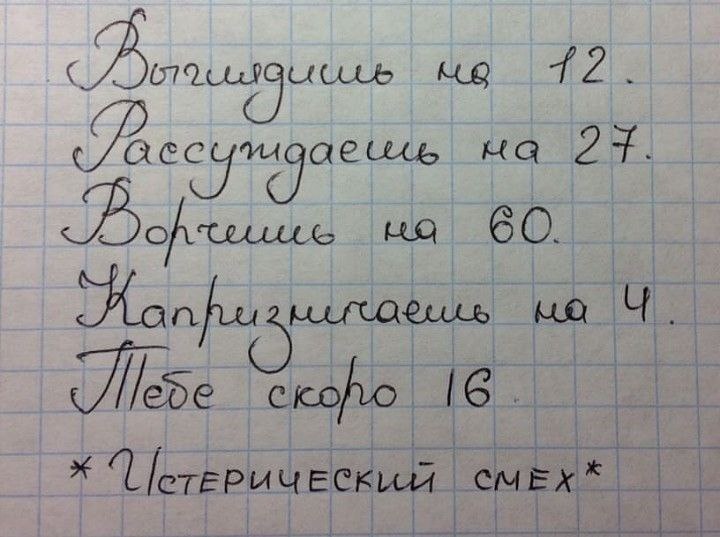 Выглядишь на 12.
Рассуждаешь на 27.
Ворчишь на 60.
Капризничаешь на 4.
Тебе скоро 16.
*Истерический смех*